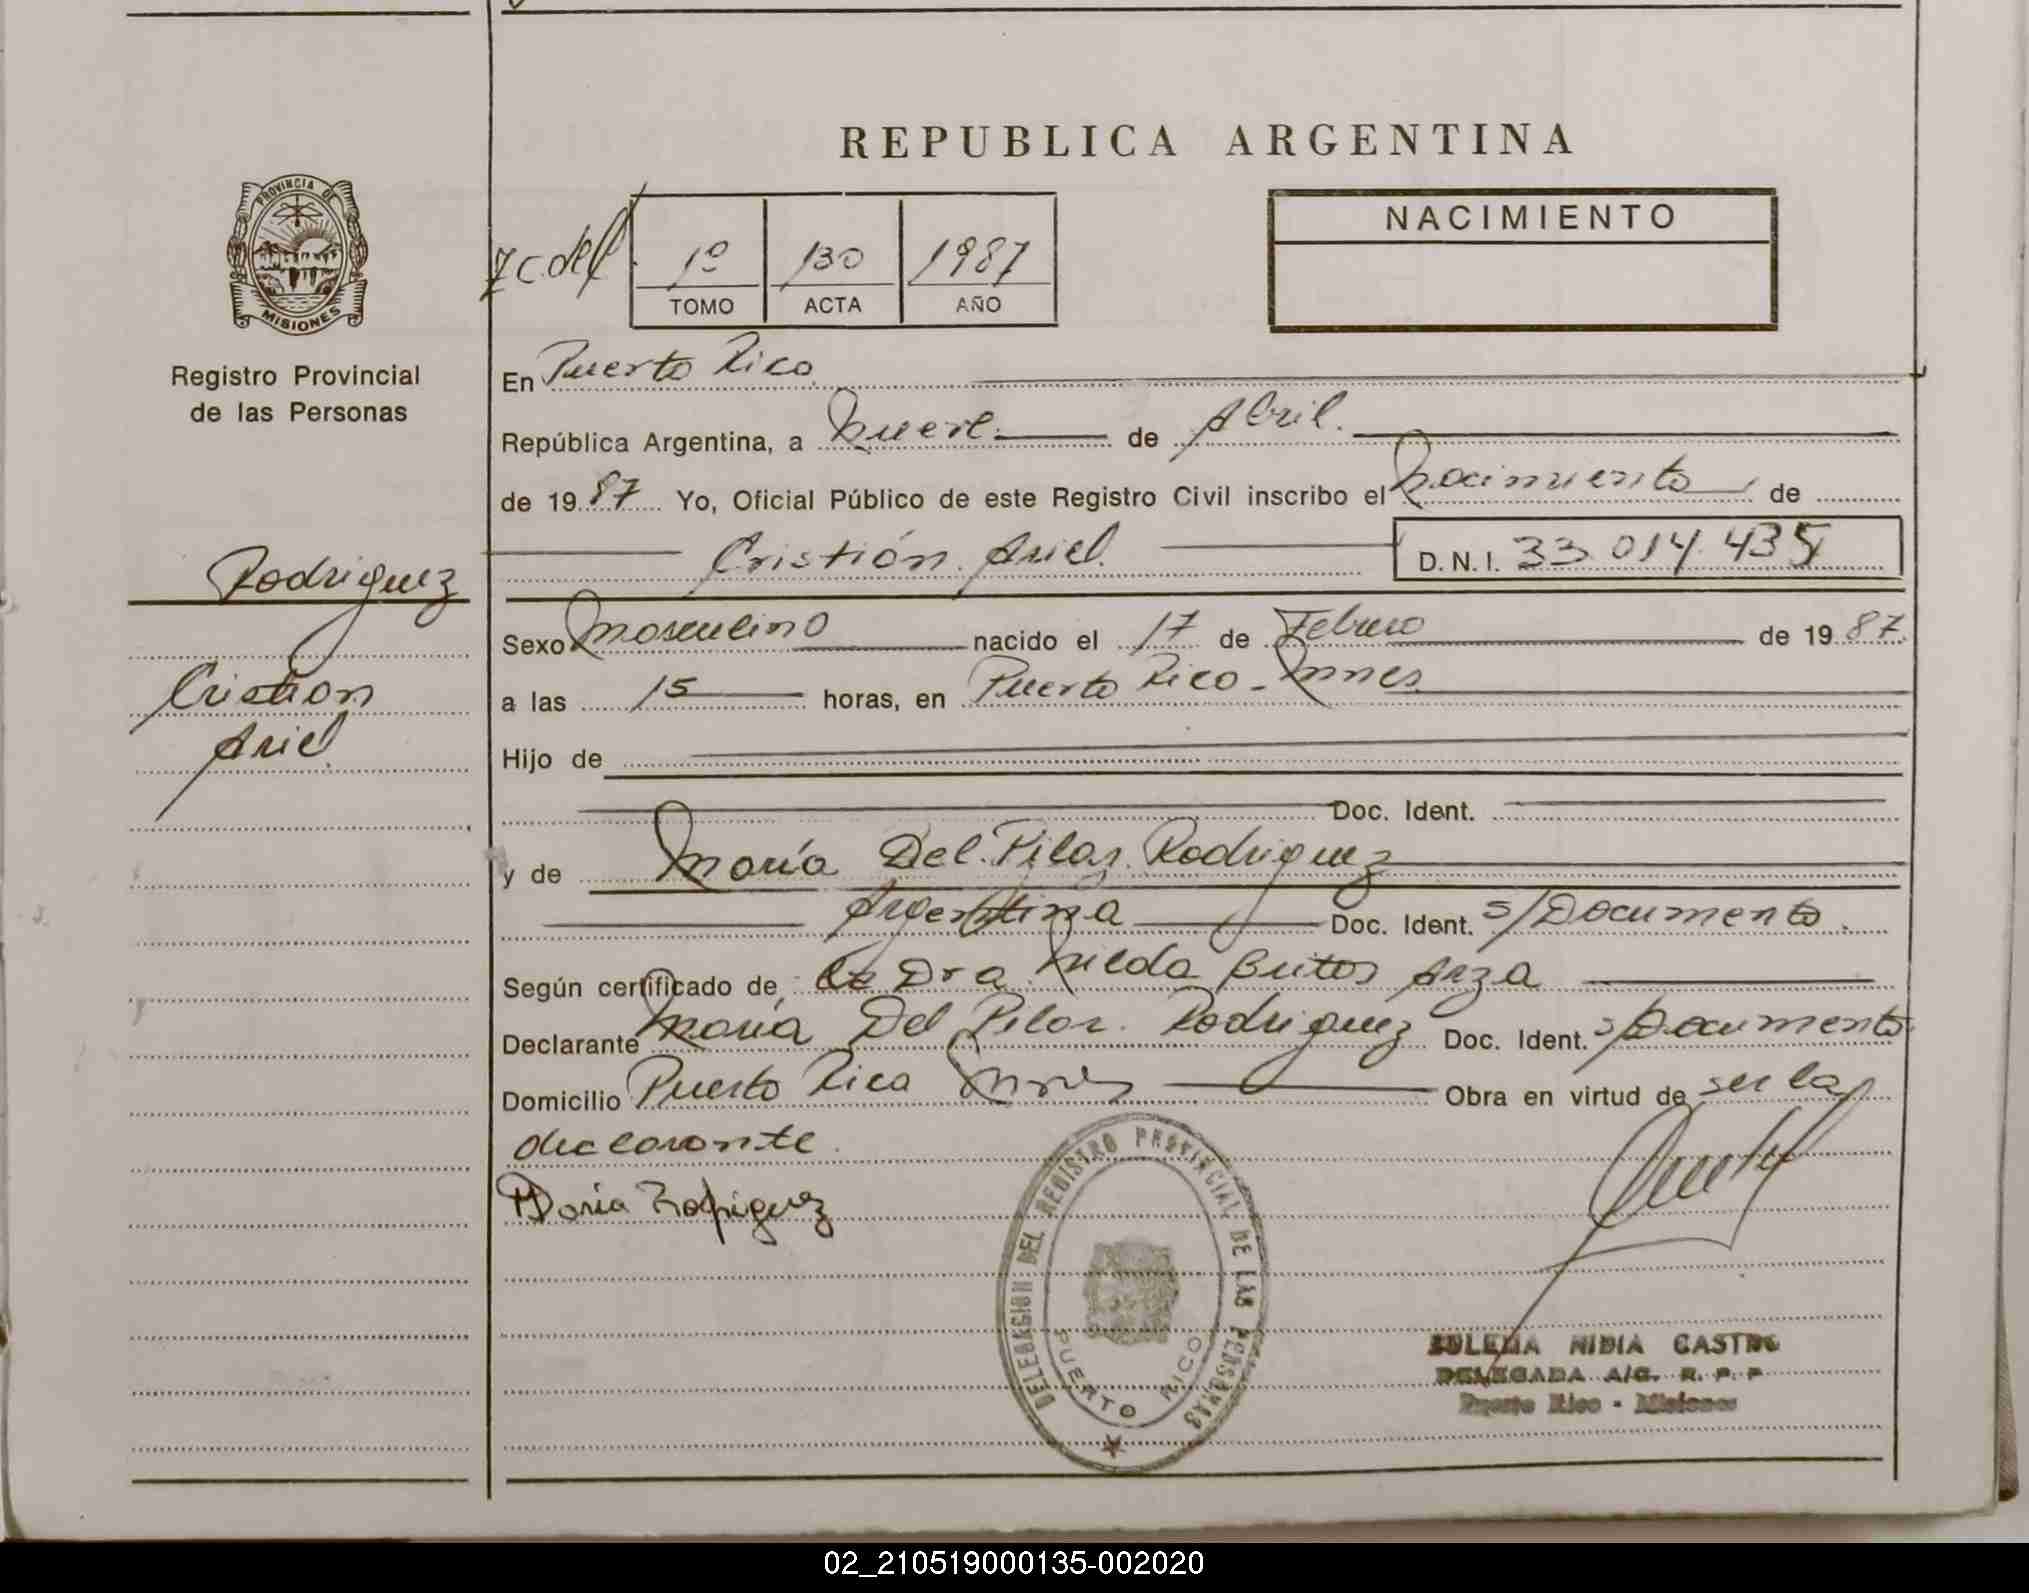 REPUBLICA ARGENTINA
PROVINCIA DE
MISIONES
Registro Provincial
de las Personas
1º 130 1987
TOMO ACTA AÑO
NACIMIENTO
En Puerto Rico
República Argentina, a Nueve de Abril.
de 19 87 Yo, Oficial Público de este Registro Civil inscribo el Nacimiento de
Cristián Ariel D. N. I. 33 014 435
Rodriguez
Cristian
Ariel
Sexo Masculino nacido el 17 de Febrero de 19 87
a las 15 horas, en Puerto Rico - Mnes
Hijo de
Doc. Ident.
y de María Del Pilar Rodriguez
Argentina Doc. Ident. s/Documento
Según certificado de la Dra Nilda Britos Arza
Declarante María Del Pilar Rodriguez Doc. Ident. s/Documento
Domicilio Puerto Rico Mnes Obra en virtud de ser la
declarante.
Maria Rodriguez
DELEGACION DEL REGISTRO PROVINCIAL DE LAS PERSONAS
PUERTO RICO
ZULEMA NIDIA CASTRO
DELEGADA A/C. R. P. P
Puerto Rico - Misiones
02_210519000135-002020